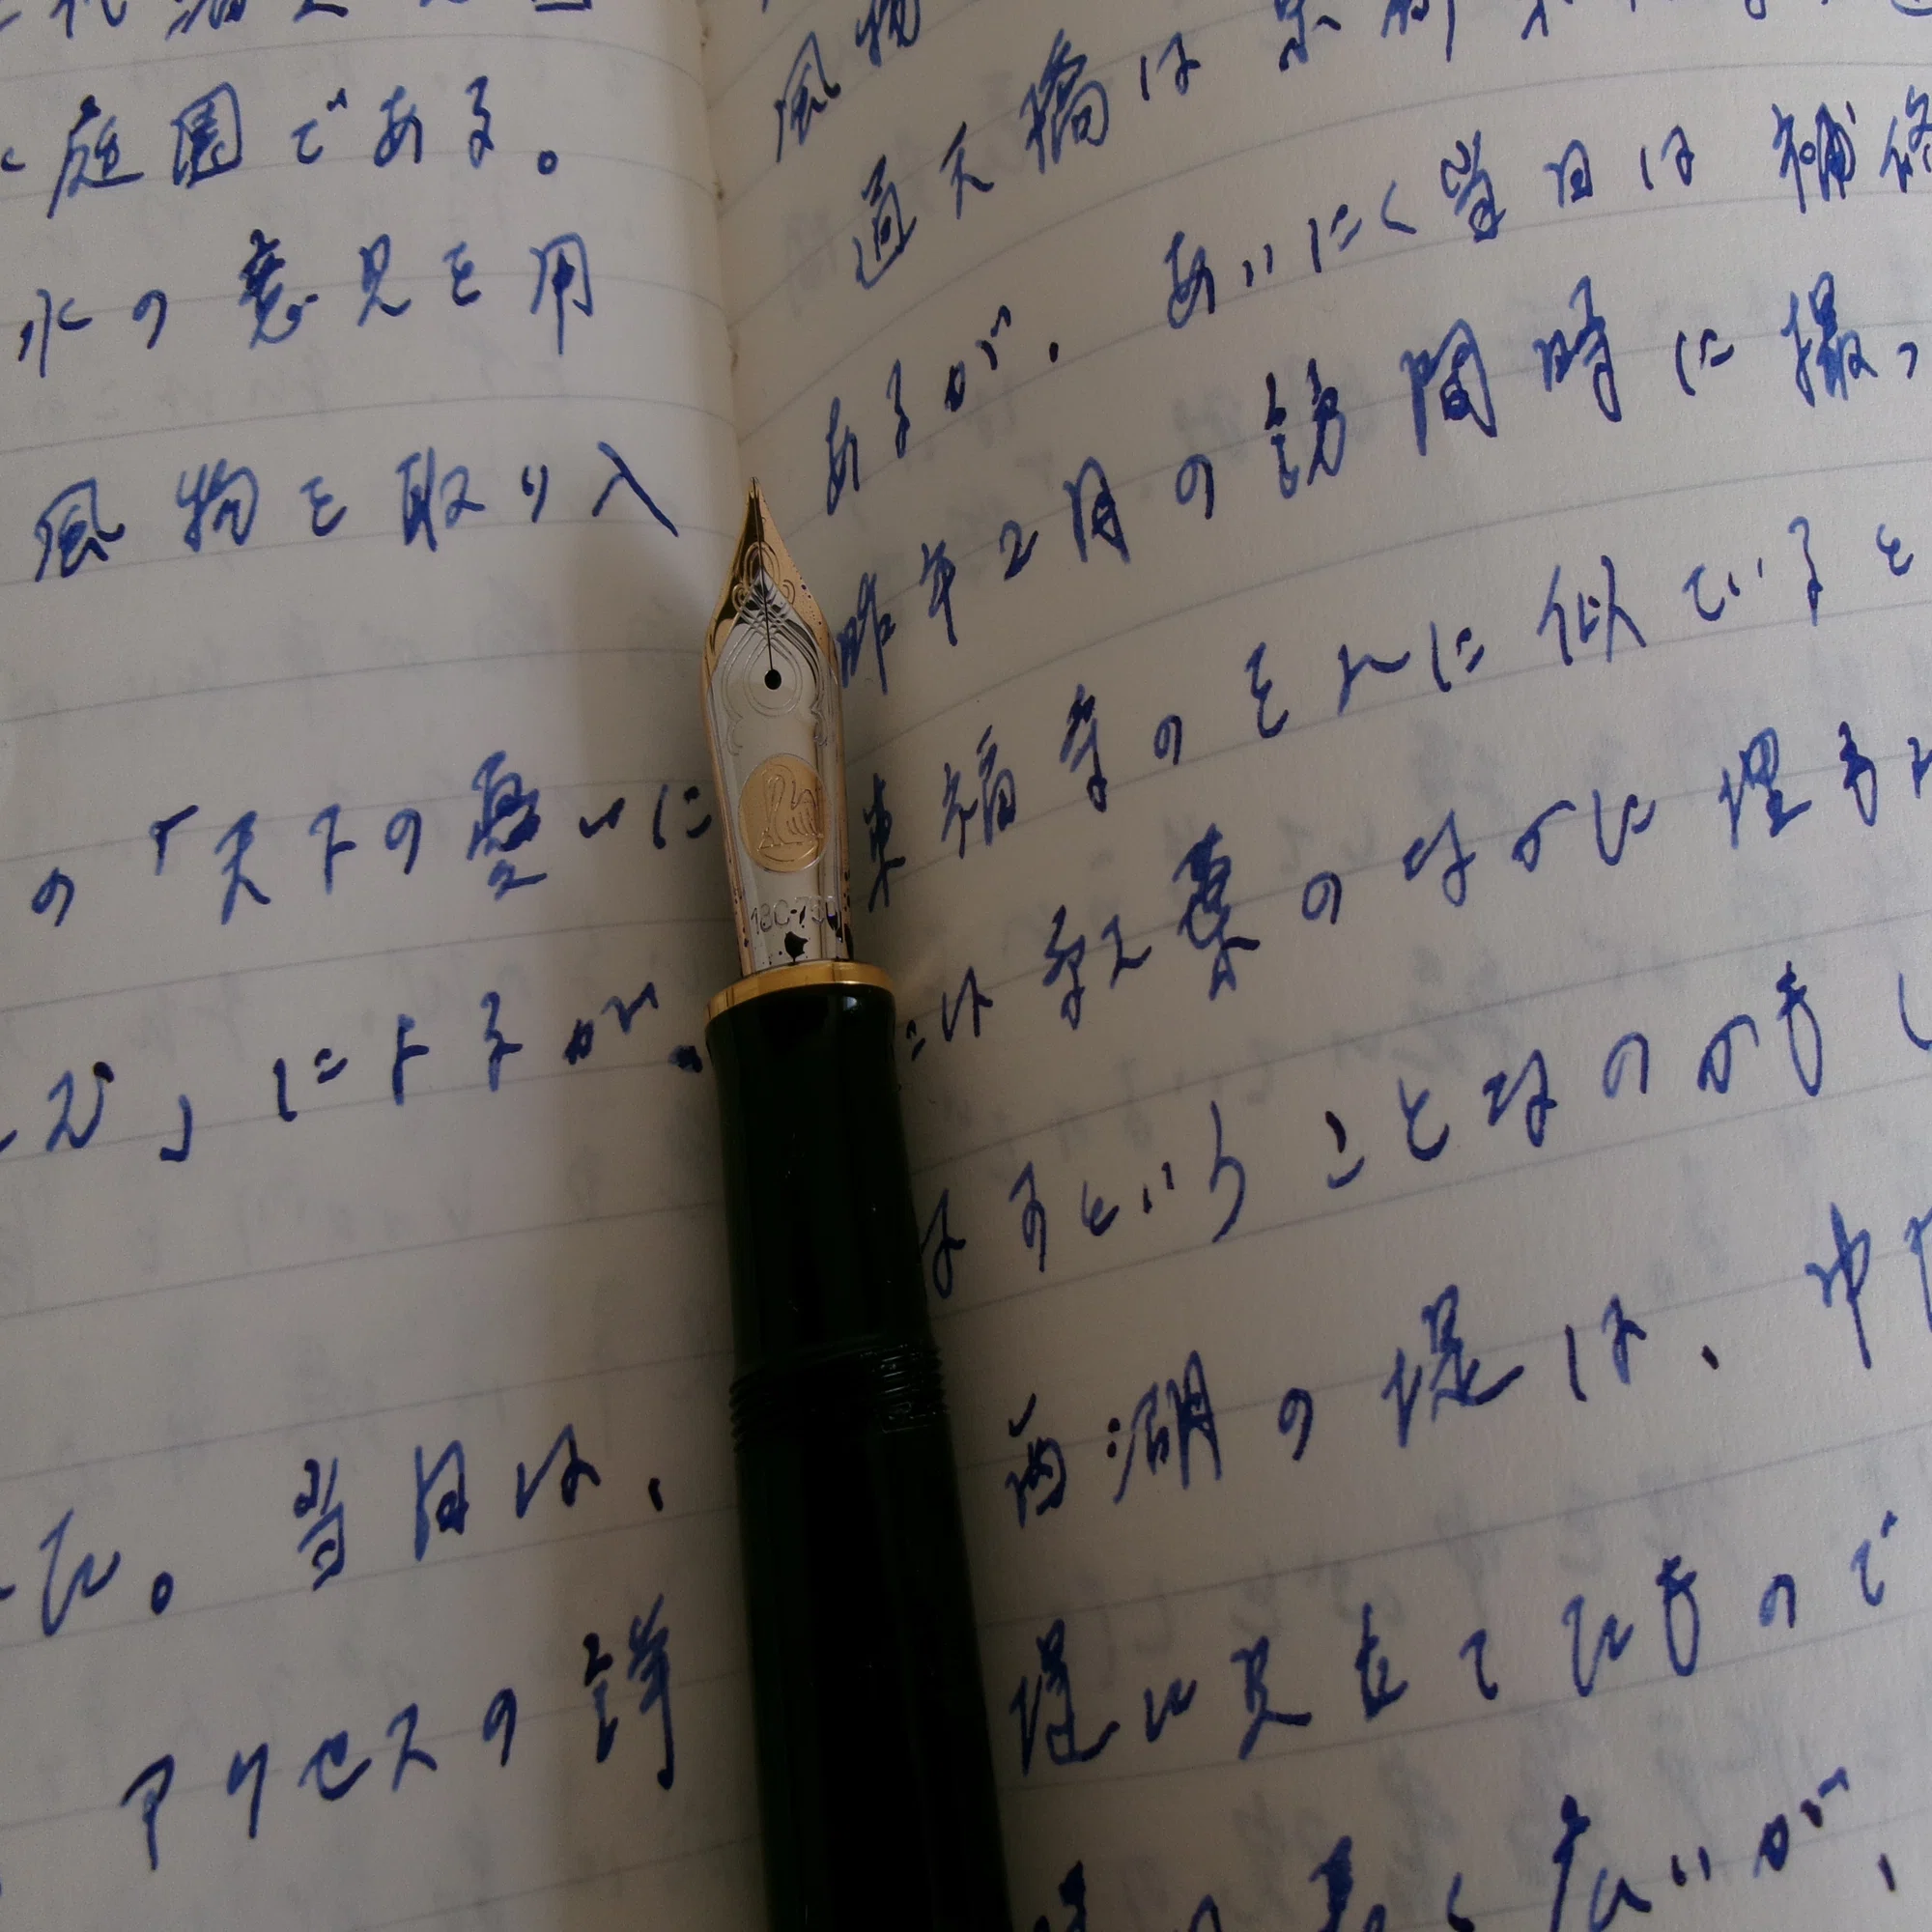 庭園である。
水の意見を用
風物を取り入
の「天下の憂いに
」によるが、
た。当日は、
アクセスの詳
風物
通天橋は
あるが、あいにく当日は補修
昨年2月の訪問時に撮っ
東福寺のそれに似ているを
は紅葉のなかに埋もれ
なるということなのかもし
西湖の堤は、中
堤に見立てたもので
広いが、
18C-750